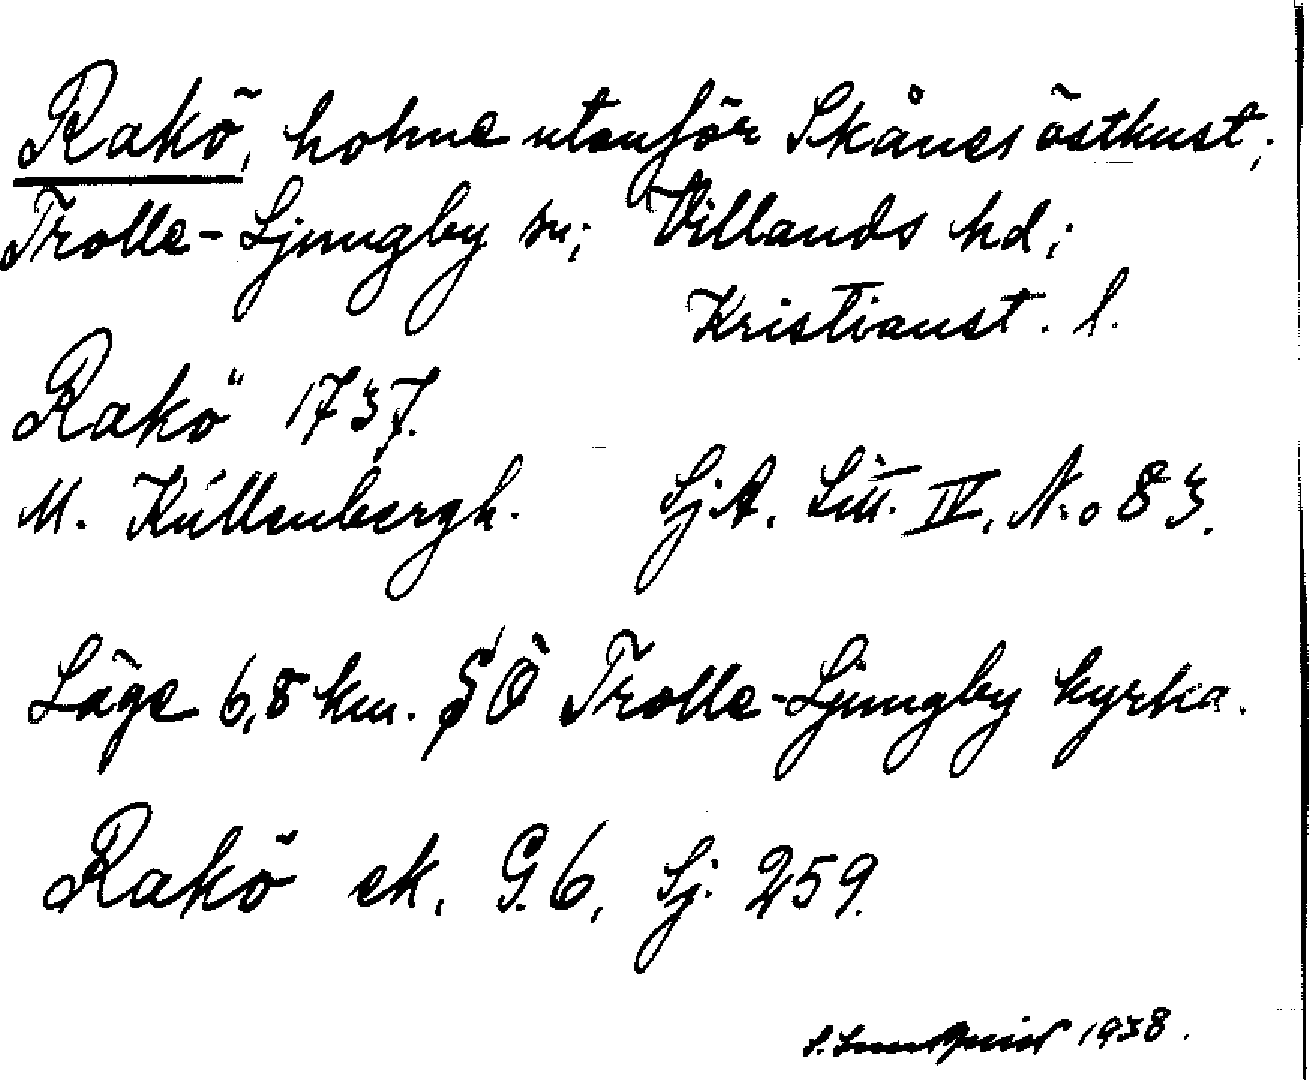 Rakö, holme utanför Skånes östkust;
Trolle-Ljungby sn; Villands hd;
Kristianst. l.
Rakö 1737.
M. Kúllenbergh. SjA. Litt. IV. N:o 83.
Läge 6,8 km. SÖ Trolle-Ljungby kyrka.
Rakö ek. G.6, Sj. 259.
1938.